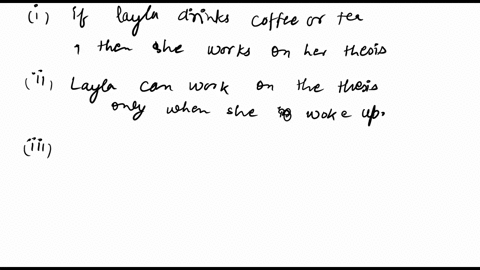 (i) If layla drinks coffee or tea
, then she works on her thesis
(ii) Layla can work on the thesis
only when she woke up.
(iii)